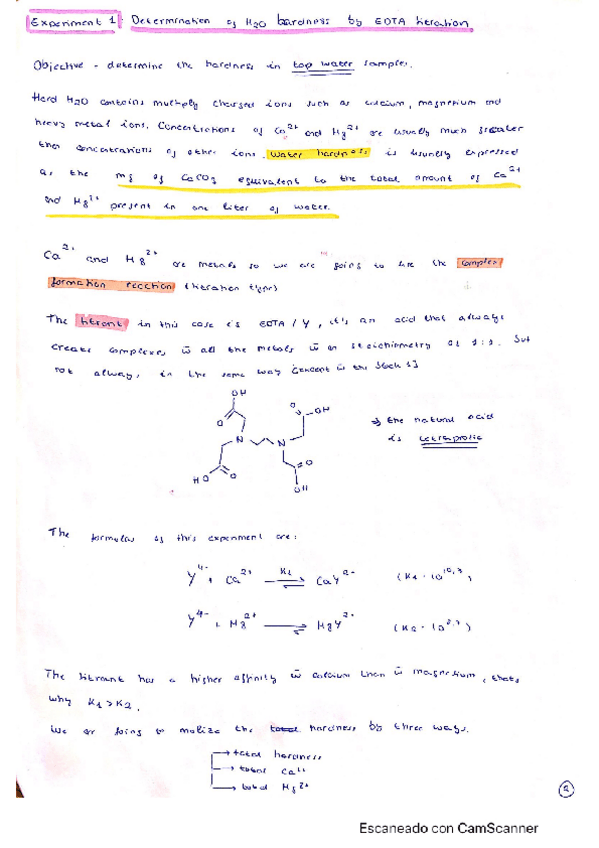 Experiment 1: Determination of H2O hardness by EDTA titration
Objective - determine the hardness in top water samples.
Hard H2O contains multiply charged ions such as calcium, magnesium and
heavy metal ions. Concentrations of Ca2+ and Mg2+ are usually much greater
than concentrations of other ions. Water hardness is usually expressed
as the mg of CaCO3 equivalent to the total amount of Ca2+
and Mg2+ present in one liter of water.
Ca2+ and Mg2+ are metals so we are going to use the complex
formation reaction (titration type)
The titrant in this case is EDTA / Y, it's an acid that always
create complexes w̄ all the metals w̄ an stoichiometry of 1:1. But
not always in the same way
OH
O
O
OH
N
N
HO
O
O
OH
⇒ the natural acid
is tetraprotic
The formulas of this experiment are:
Y4- + Ca2+ K1 ⇌ CaY2- (K1 = 10^10,7)
Y4- + Mg2+ ⇌ MgY2- (K2 = 10^8,7)
The titrant has a higher affinity w̄ calcium than w̄ magnesium, thats
why K1 > K2.
We ar going to analize the total hardness by three ways.
→ total hardness
→ total Ca2+
→ total Mg2+
2
Escaneado con CamScanner